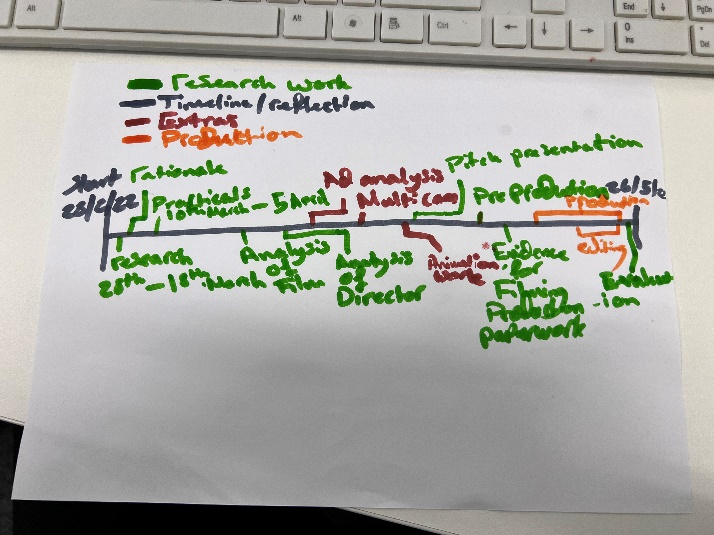 Alt
Alt
Ctrl
End
Ins
PgDn
Del
research work
Timeline/reflection
Extras
Production
Start
28/2/22
rationale
Practicals
10th March - 5 April
Ad analysis
Multi cam
Pitch presentation
Pre Production
Production
editing
research
28th - 18th March
Analysis
of
Film
Analysis
of
Director
Animation
Evidence
for
Filming
Production
paperwork
Evaluat
-ion